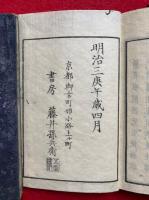 明治三庚午歳四月
京都御幸町姉小路上ル町
書房 藤井孫兵衛